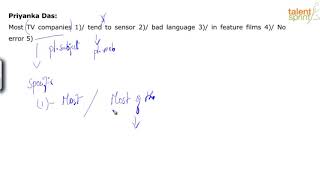 talent
sprint
Priyanka Das:
Most TV companies 1)/ tend to sensor 2)/ bad language 3)/ in feature films 4)/ No
error 5)
pl.subject
pl.verb
Specific
(1) - Most / Most of the